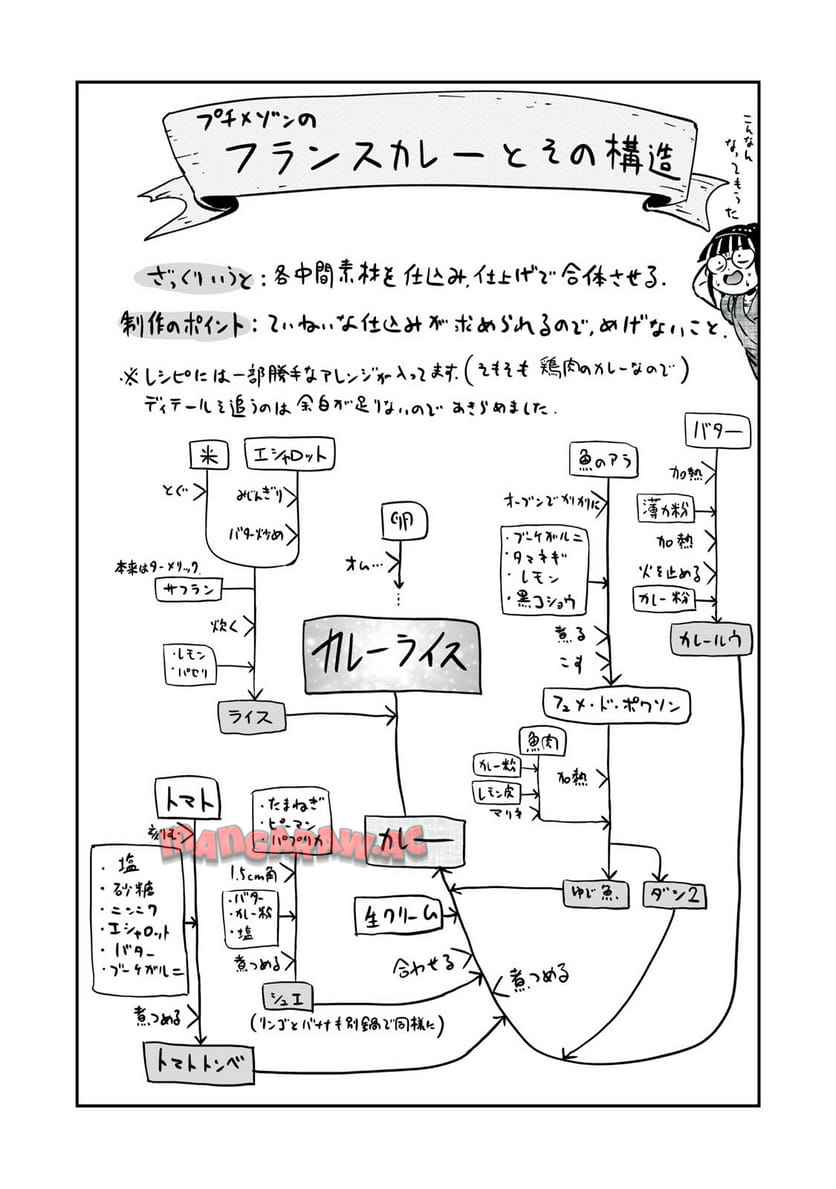 プチメゾンの
フランスカレーとその構造
こんなん
なってもうた
ざっくりいうと：各中間素材を仕込み、仕上げで合体させる。
制作のポイント：ていねいな仕込みが求められるので、めげないこと。
※レシピには一部勝手なアレンジが入ってます。(そもそも鶏肉のカレーなので)
ディテールを追うのは余白が足りないのであきらめました。
米
とぐ
エシャロット
みじんぎり
バター炒め
本来はターメリック
サフラン
炊く
・レモン
・パセリ
ライス
卵
オム…
カレーライス
魚のアラ
オーブンでかりかりに
・ブーケガルニ
・タマネギ
・レモン
・黒コショウ
煮る
こす
フュメ・ド・ポワソン
バター
加熱
薄力粉
加熱
火を止める
カレー粉
カレールウ
魚肉
カレー粉
レモン皮
マリネ
加熱
ゆで魚
ダシ2
トマト
・塩
・砂糖
・ニンニク
・エシャロット
・バター
・ブーケガルニ
煮つめる
トマトトンベ
・たまねぎ
・ピーマン
・パプリカ
1.5cm角
・バター
・カレー粉
・塩
煮つめる
シュエ
(リンゴとバナナも別鍋で同様に)
カレー
生クリーム
合わせる
煮つめる
MANGARAW.AC